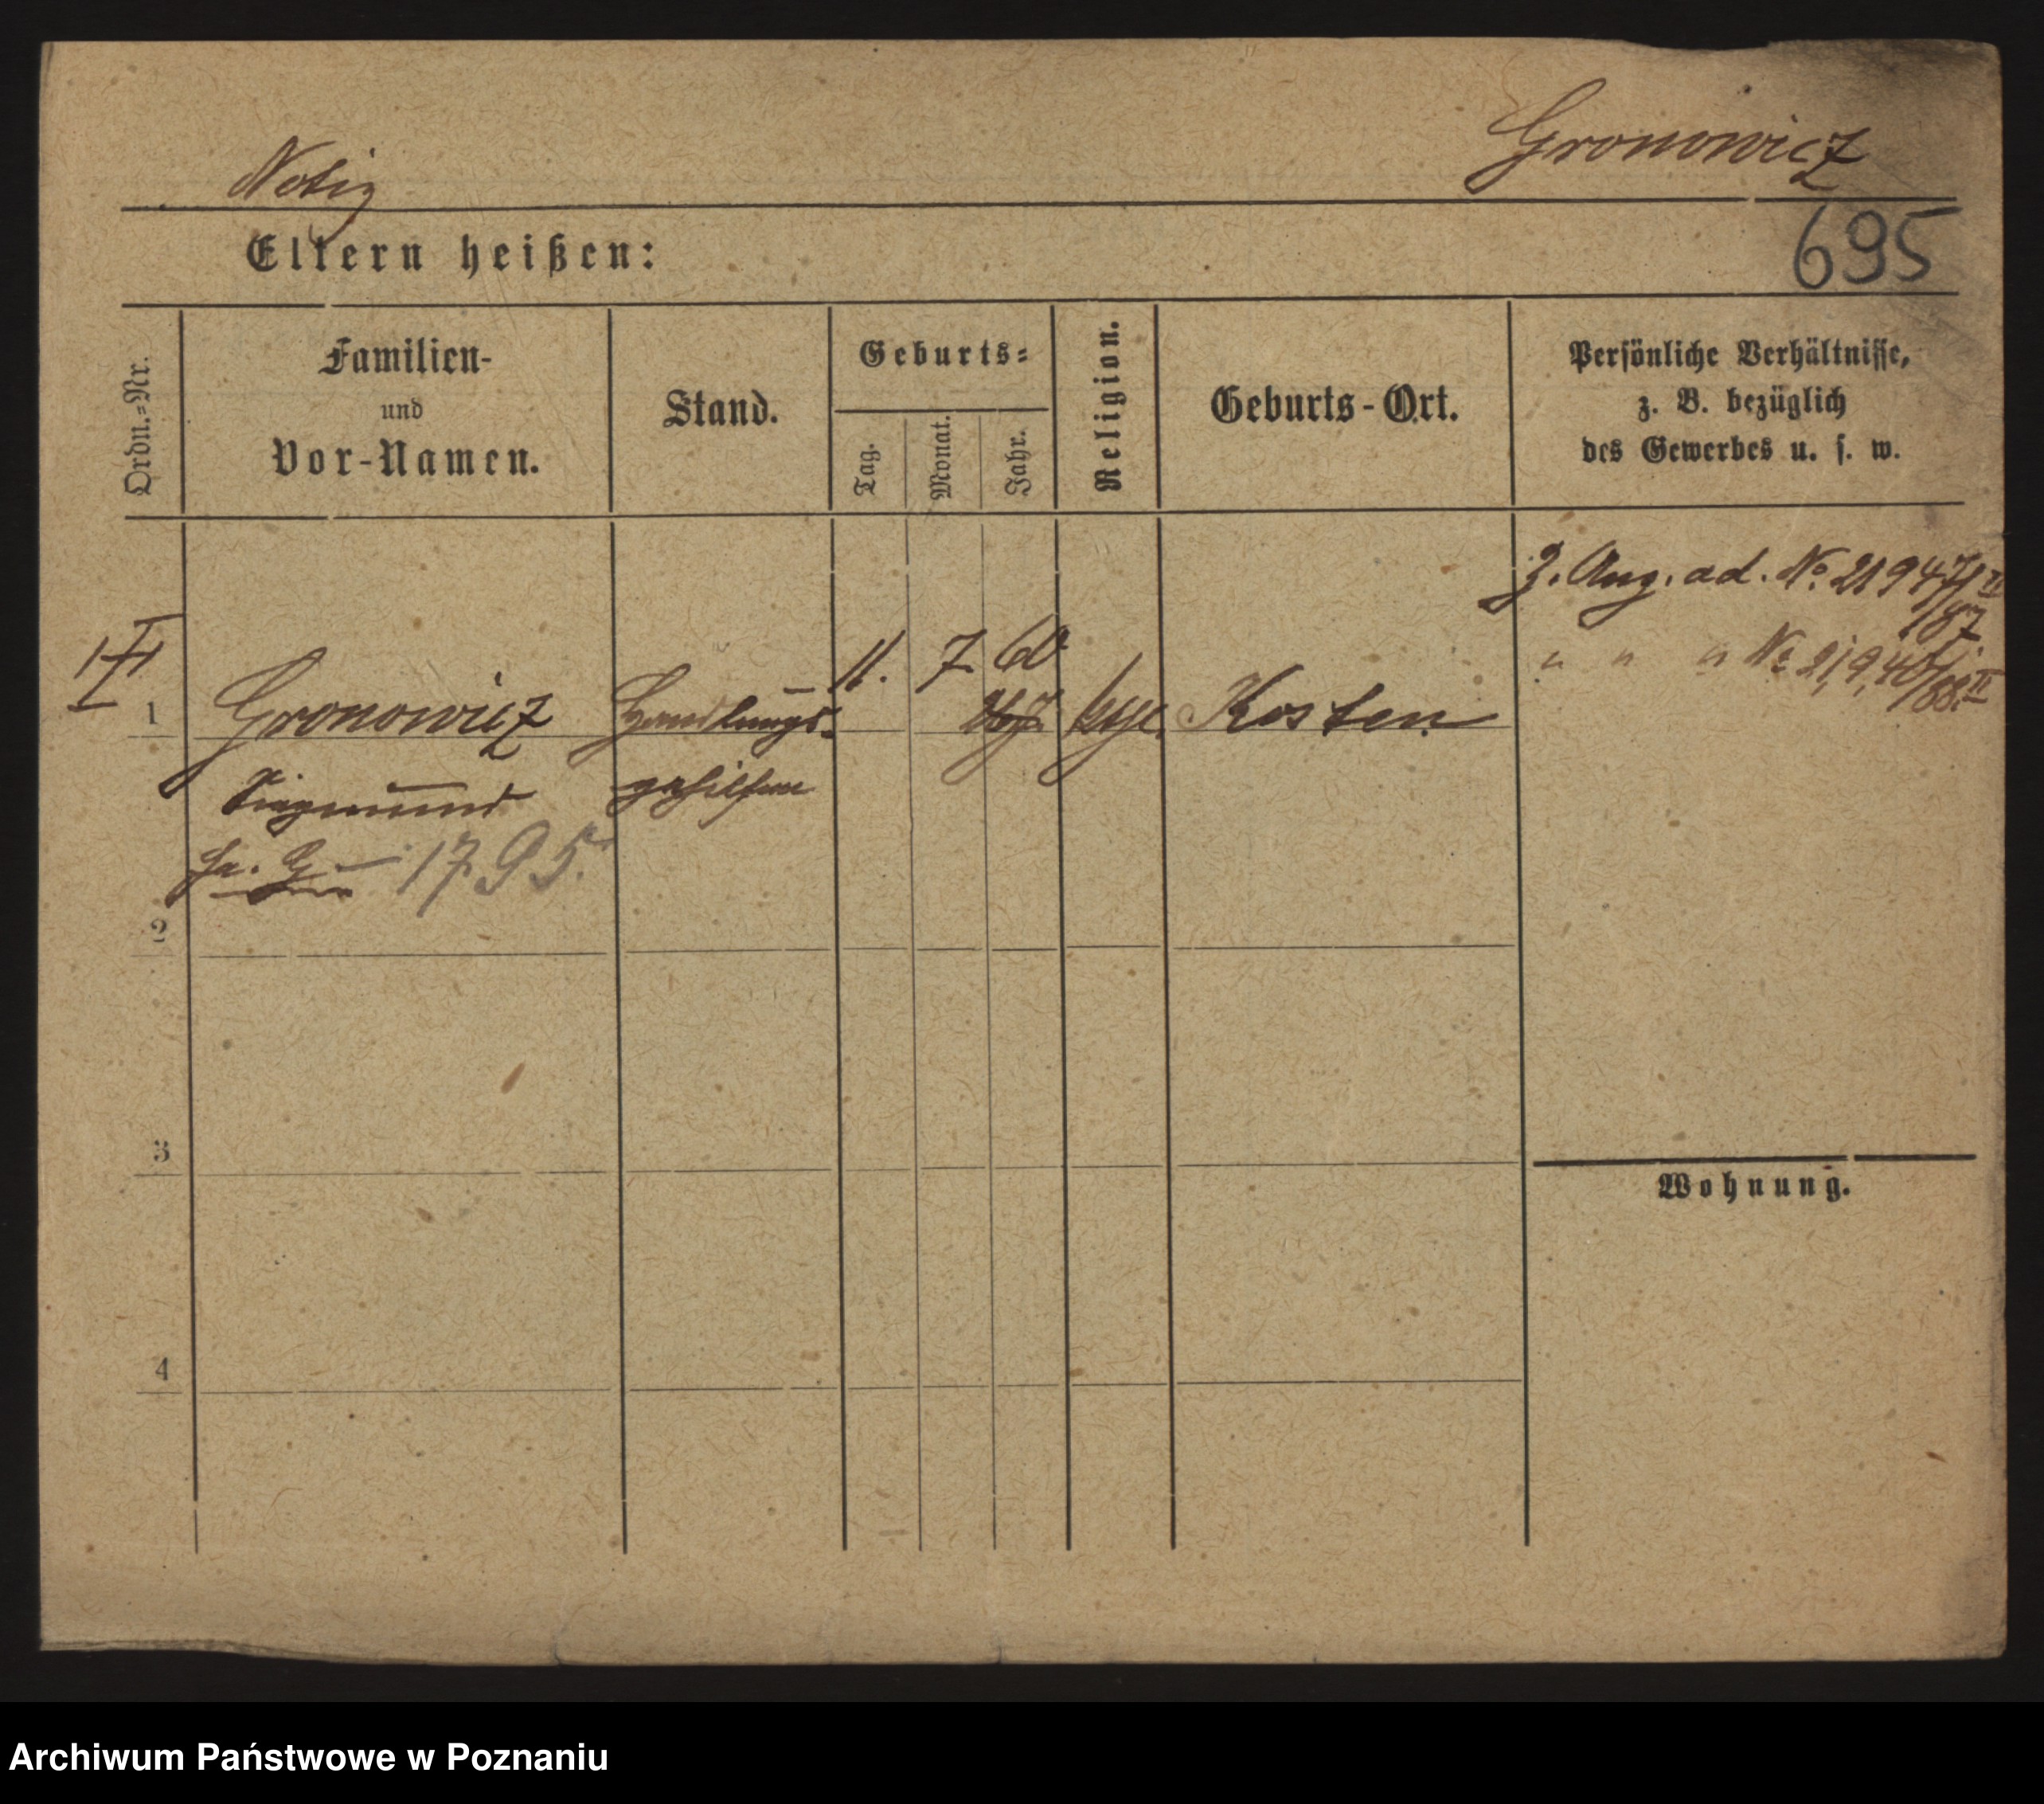 Gronowicz
Notiz
695
Eltern heißen:
Ordn.=Nr.
Familien-
und
Vor-Namen.
Stand.
Geburts=
Tag.
Monat.
Jahr.
Religion.
Geburts-Ort.
Persönliche Verhältnisse,
z. B. bezüglich
des Gewerbes u. s. w.
1
Gronowicz
Handlungs-
11. 7. 60
Kosten
Siegmund
gehilfen
1795.
Z. Ang. ad. No. 21947/II
87
" " " No 21,9,46/II
88.
2
3
4
Wohnung.
Archiwum Państwowe w Poznaniu